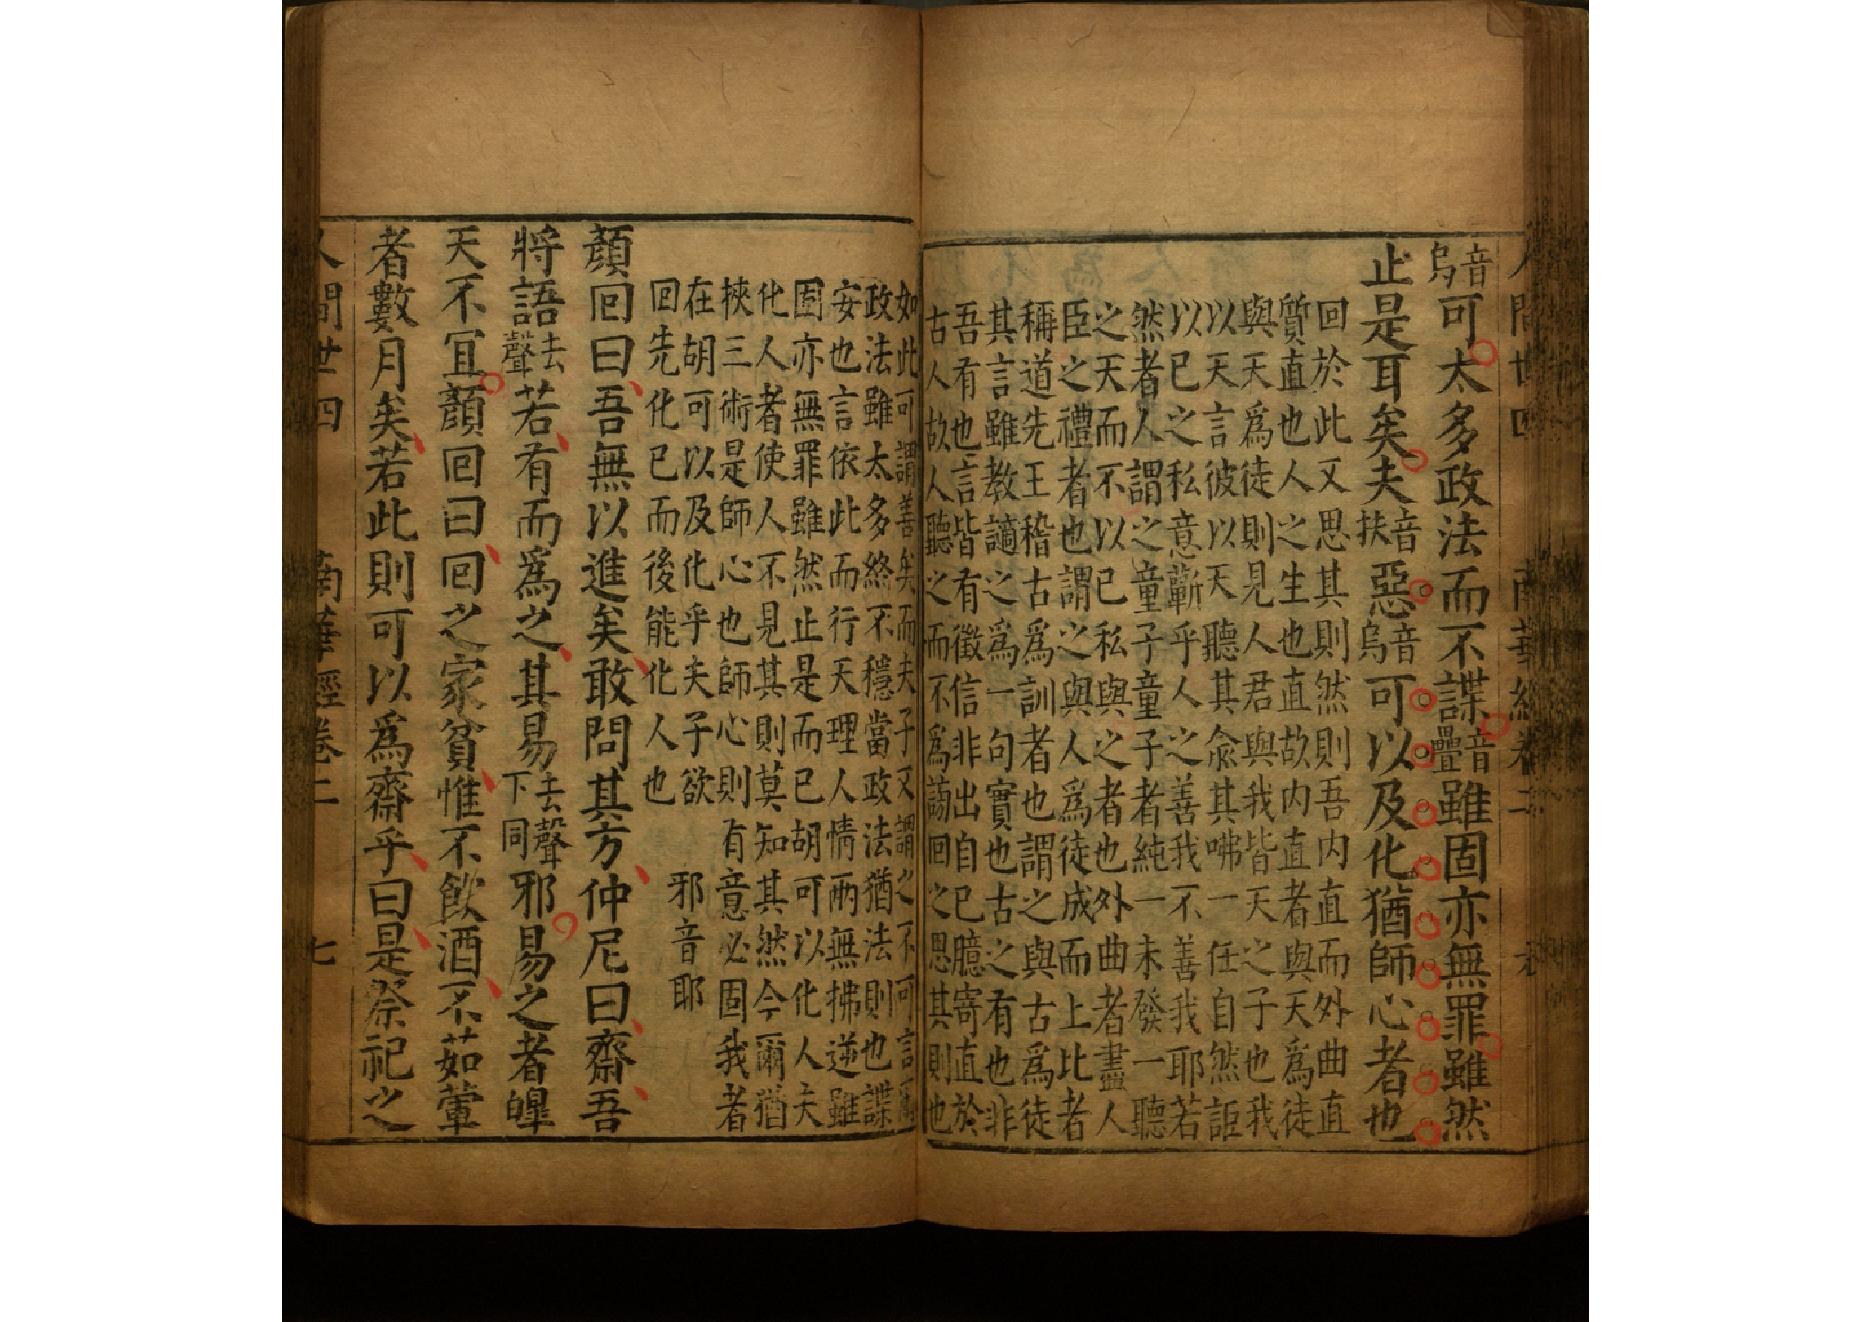 人間世四 南華經卷二
音烏可太多政法而不諜音疊雖固亦無罪雖然
止是耳矣夫音扶惡音烏可以及化猶師心者也
回於此又思其則然則吾内直而外曲直
質直也人之生也直故内直者與天爲徒
與天爲徒則見人君與我皆天之子也我
以天言彼以天聽其兪其咈一任自然詎
以已之私意蘄乎人之善我不善我耶若
然者人謂之童子童子者純一未發一聽
之天而不以已私與之者也外曲者盡人
臣之禮者也謂之與人爲徒成而上比者
稱道先王稽古爲訓者也謂之與古爲徒
其言雖教讁之爲一句實也古之有也非
吾有也言皆有徵信非出自已臆寄直於
古人故人聽之而不爲謫回之思其則也
如此可謂善矣而夫子又謂之不可言
政法雖太多終不穩當政法猶法則也諜
安也言依此而行天理人情兩無拂逆雖
固亦無罪雖然止是而已胡可以化人夫
化人者使人不見其則莫知其然今爾猶
挾三術是師心也師心則有意必固我者
在胡可以及化乎夫子欲
回先化已而後能化人也 邪音耶
顏回曰吾無以進矣敢問其方仲尼曰齋吾
將語去聲若有而爲之其易去聲下同邪易之者皡
天不宜顏回曰回之家貧惟不飮酒不茹葷
者數月矣若此則可以爲齋乎曰是祭祀之
人間世四 南華經卷二 七